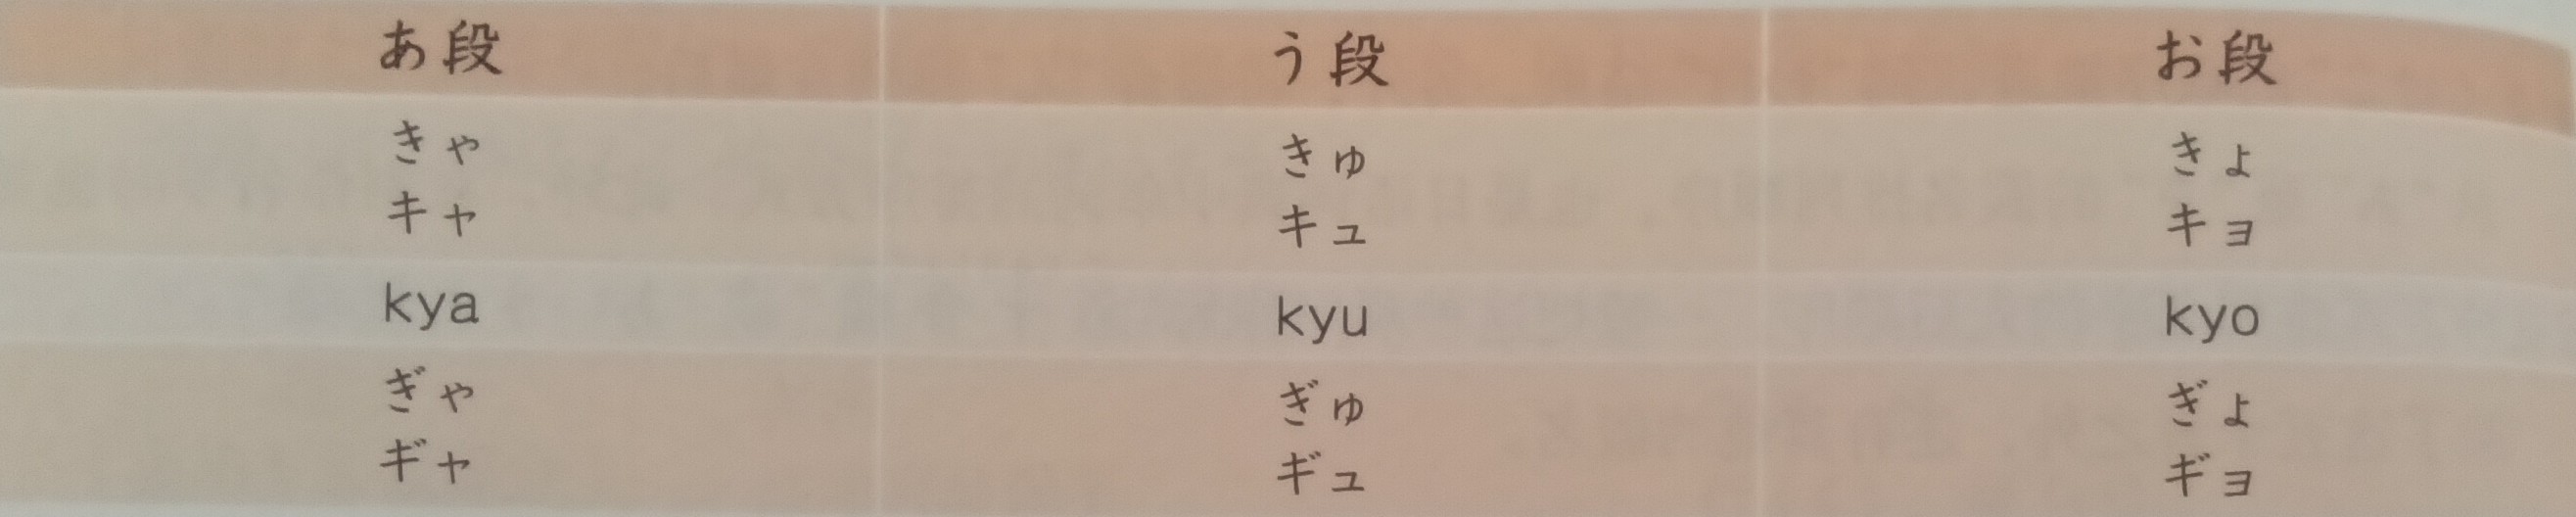 あ段 う段 お段
きゃ きゅ きょ
キャ キュ キョ
kya kyu kyo
ぎゃ ぎゅ ぎょ
ギャ ギュ ギョ